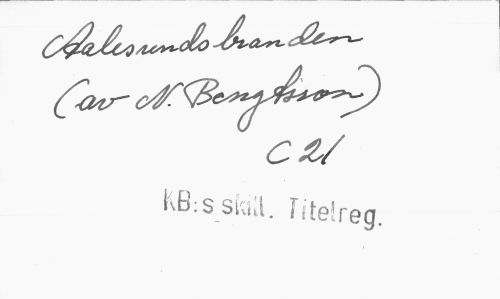 Aalesundsbranden
(av N. Bengtsson)
C 21
KB:s skill. Titelreg.